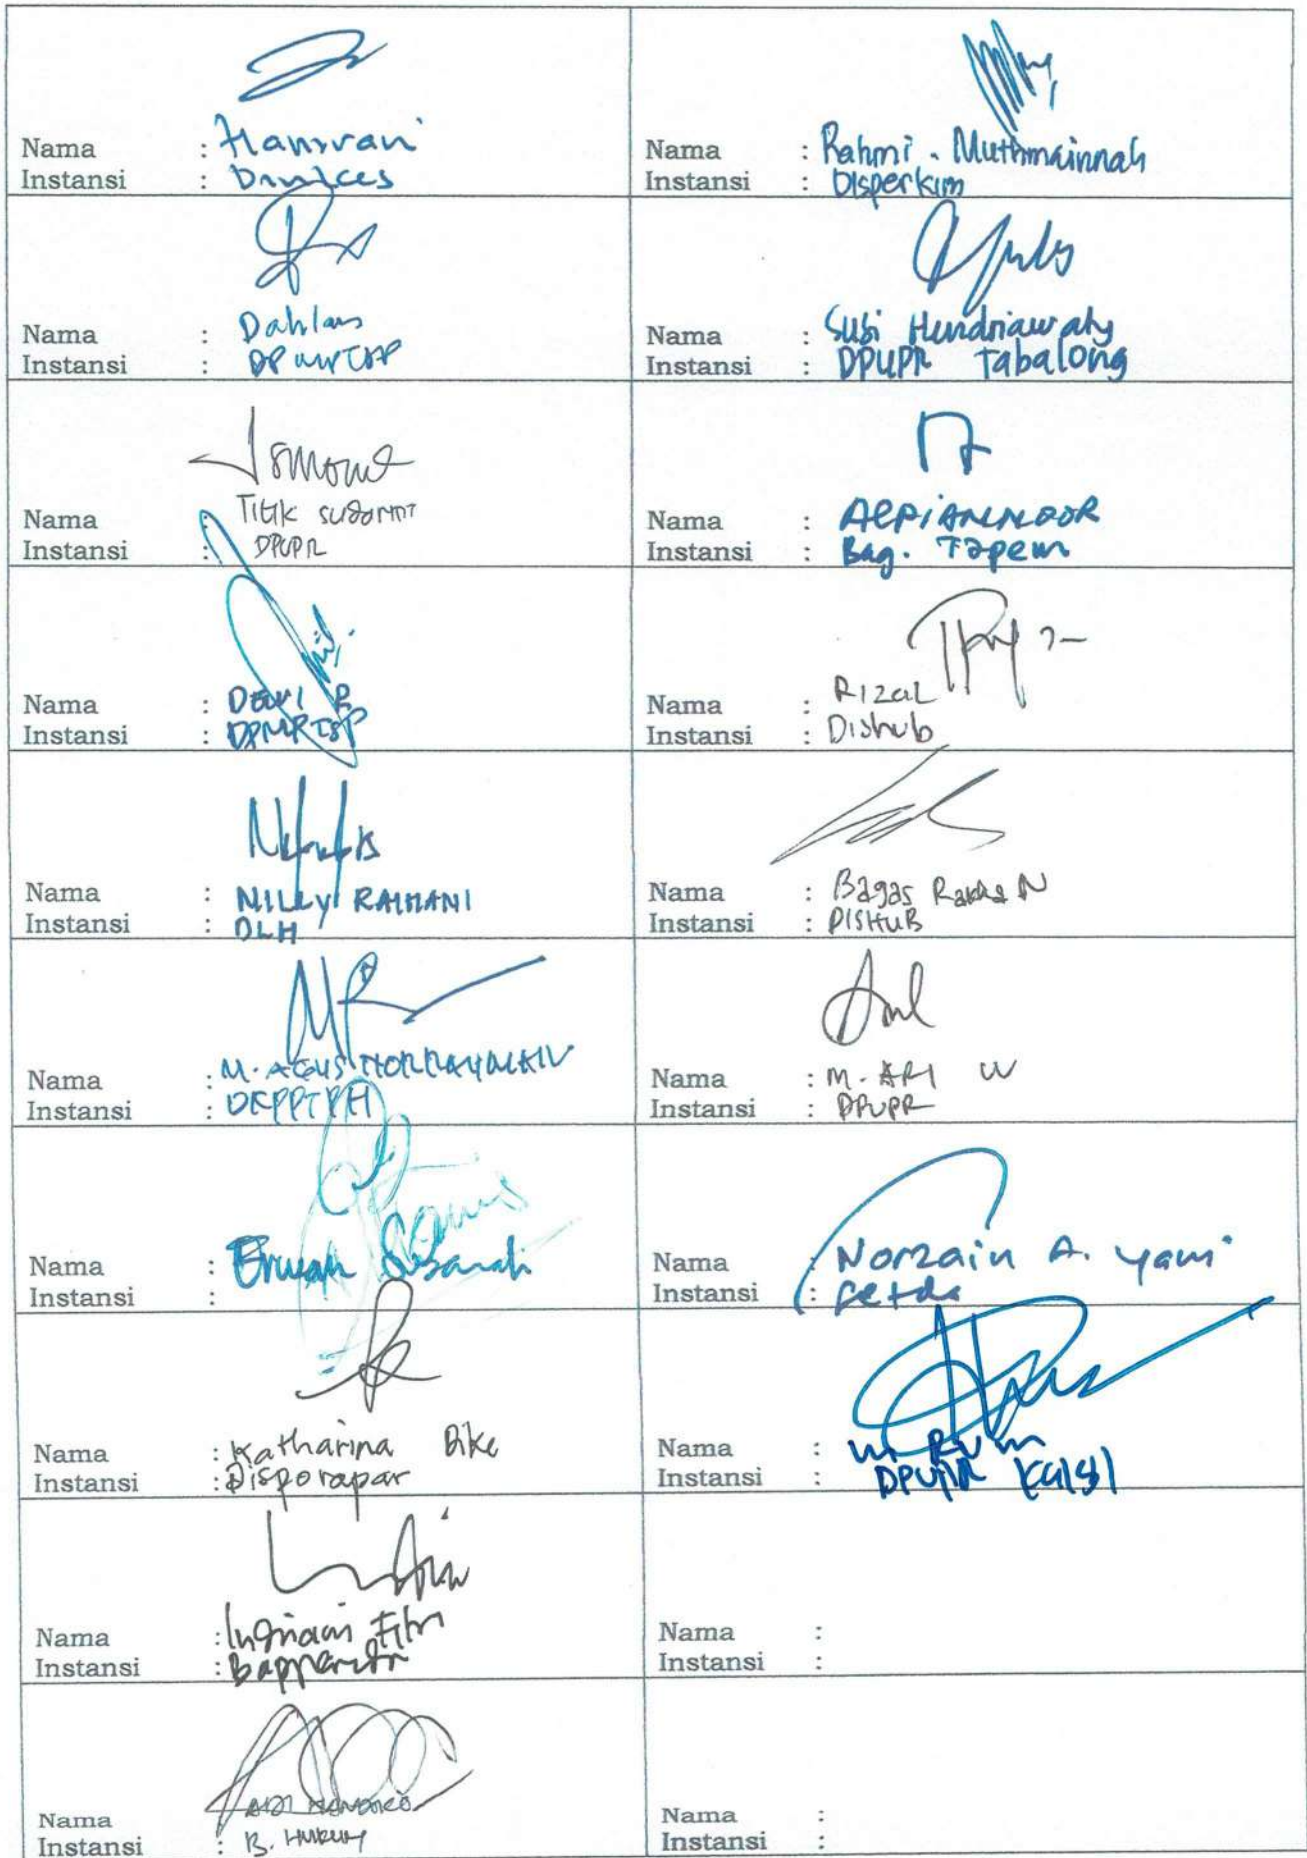 Nama : Hamrani
Instansi :
Nama : Rahmi . Muthmainnah
Instansi : Disperkim
Nama : Dahlan
Instansi :
Nama : Susi Hendriawaty
Instansi : DPUPR Tabalong
Nama Titik
Instansi : DPUPR
Nama : ALPIANNOOR
Instansi : Bag. Tapem
Nama : DEWI R
Instansi :
Nama : Rizal
Instansi : Dishub
Nama : NILLY RAHMANI
Instansi : DLH
Nama : Bagas Rakha N
Instansi : DISHUB
Nama : M. AGUS
Instansi : DKPPTPH
Nama : M. ARI W
Instansi : DPUPR
Nama : Erwan
Instansi :
Nama : Norzain A. Yani
Instansi : Setda
Nama : Katharina Bike
Instansi : Disporapar
Nama :
Instansi : DPUPR Kalsel
Nama : Indriani Fitri
Instansi :
Nama :
Instansi :
Nama
Instansi : B. HUKUM
Nama :
Instansi :